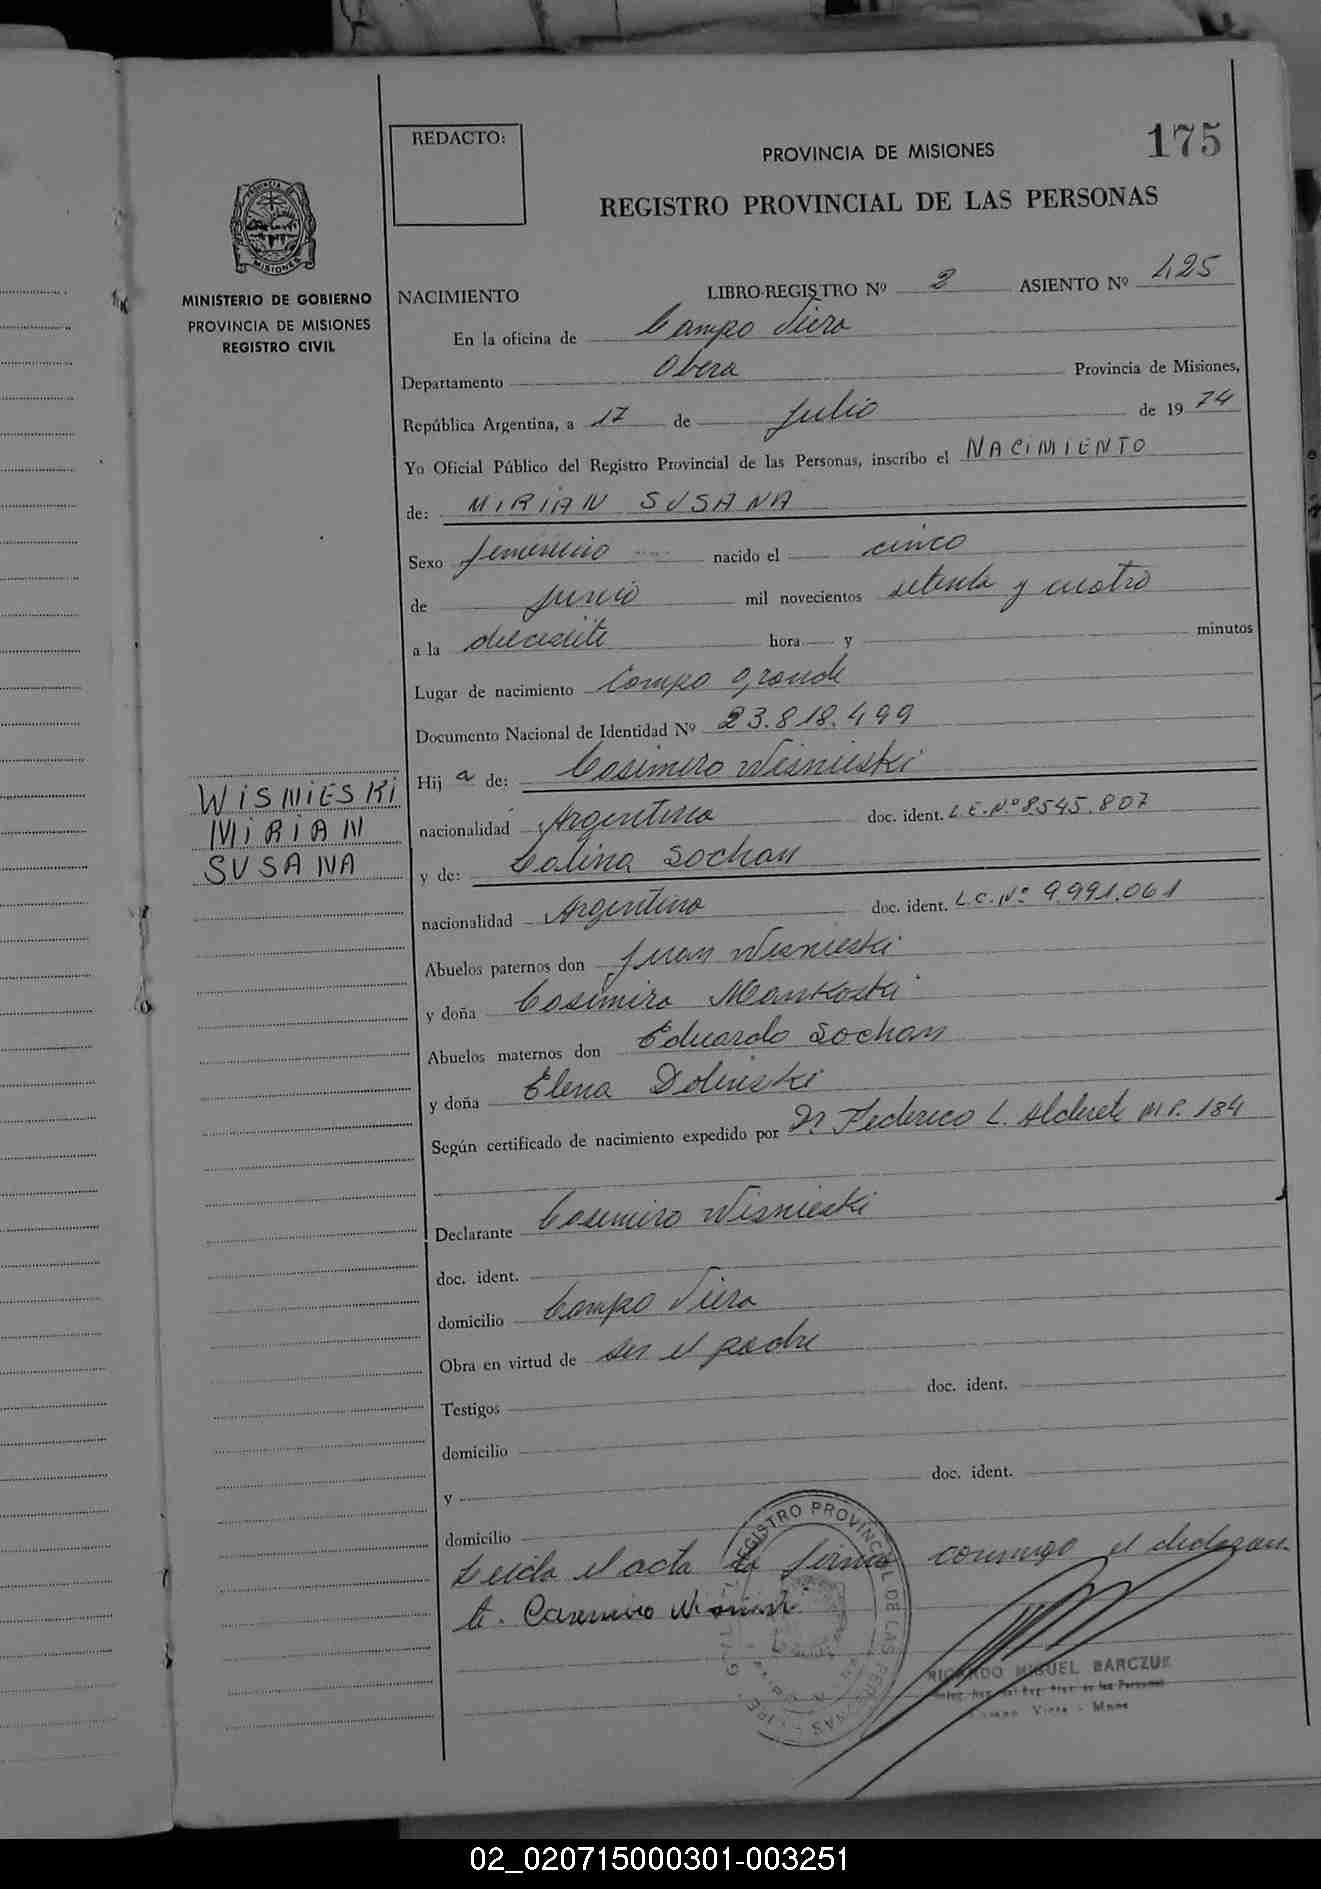 175
REDACTO:
PROVINCIA DE MISIONES
REGISTRO PROVINCIAL DE LAS PERSONAS
MISIONES
MINISTERIO DE GOBIERNO
PROVINCIA DE MISIONES
REGISTRO CIVIL
WISNIESKI
MIRIAN
SUSANA
NACIMIENTO LIBRO-REGISTRO Nº 2 ASIENTO Nº 425
En la oficina de Campo Viera
Departamento Obera Provincia de Misiones,
República Argentina, a 17 de julio de 1974
Yo Oficial Público del Registro Provincial de las Personas, inscribo el NACIMIENTO
de: MIRIAN SUSANA
Sexo femenino nacido el cinco
de junio mil novecientos setenta y cuatro
a la diecisiete hora y minutos
Lugar de nacimiento Campo Grande
Documento Nacional de Identidad Nº 23.818.499
Hija de: Casimiro Wisnieski
nacionalidad Argentina doc. ident. L.E.Nº 8545.807
y de: Salina Sochan
nacionalidad Argentina doc. ident. L.C.Nº 9.991.061
Abuelos paternos don Juan Wisnieski
y doña Casimira Mankoski
Abuelos maternos don Eduardo Sochan
y doña Elena Dolinski
Según certificado de nacimiento expedido por Dr Federico L. Alderete M.P. 184
Declarante Casimiro Wisnieski
doc. ident.
domicilio Campo Viera
Obra en virtud de ser el padre
Testigos doc. ident.
domicilio
y doc. ident.
domicilio
Leida el acta la firma conmigo el declaran-
te. Casimiro Wisnieski
REGISTRO PROVINCIAL DE LAS PERSONAS
RICARDO MIGUEL BARCZUK
Campo Viera - Mnes
02_020715000301-003251